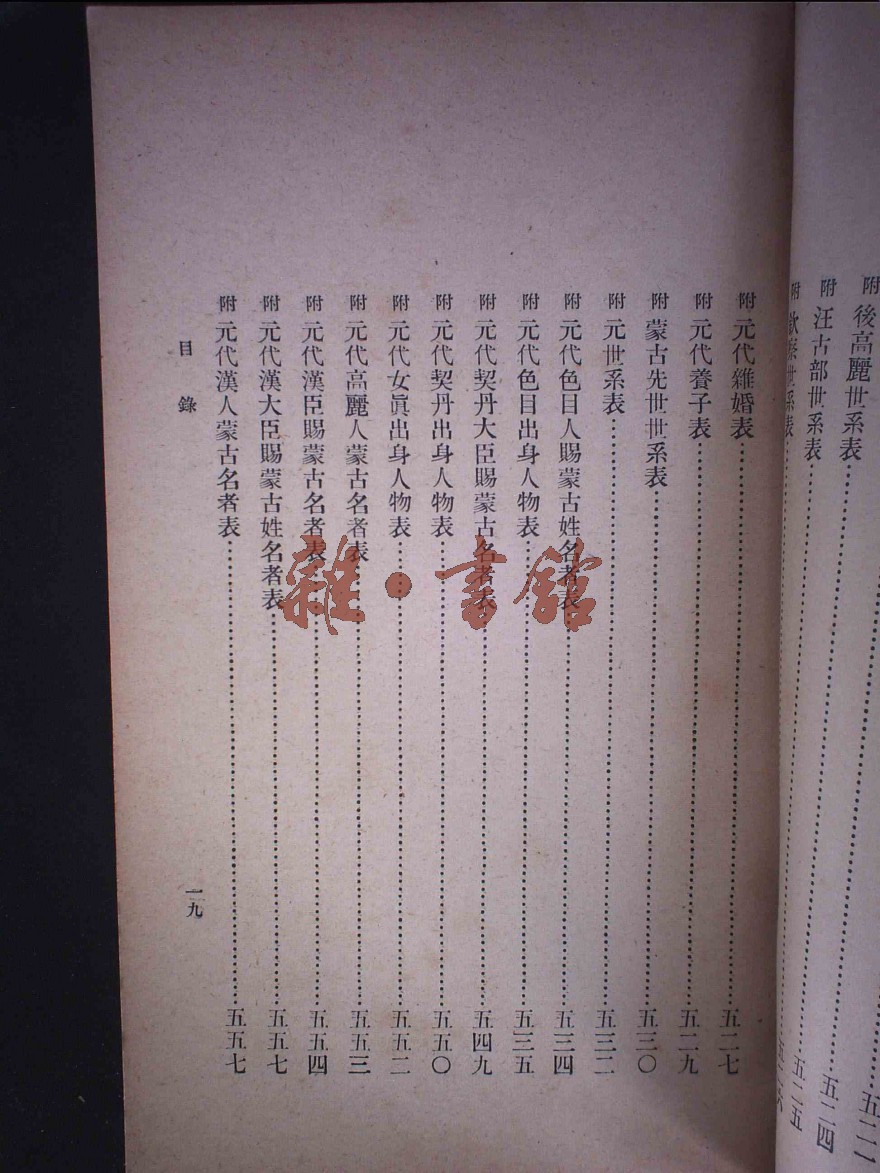 附 後高麗世系表……五二一
附 汪古部世系表……五二四
附 世系表……五二五
附 元代雜婚表……五二七
附 元代養子表……五二九
附 蒙古先世世系表……五三〇
附 元世系表……五三二
附 元代色目人賜蒙古姓名者表……五三四
附 元代色目出身人物表……五三五
附 元代契丹大臣賜蒙古名者表……五四九
附 元代契丹出身人物表……五五〇
附 元代女眞出身人物表……五五二
附 元代高麗人蒙古名者表……五五三
附 元代漢臣賜蒙古名者表……五五四
附 元代漢大臣賜蒙古姓名者表……五五七
附 元代漢人蒙古名者表……五五七
目錄
一九
雜·書館